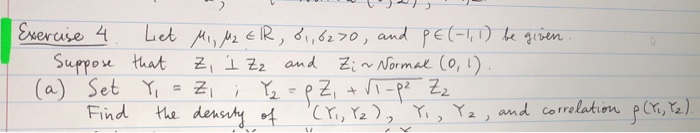 Exercise 4. Let μ₁, μ₂ ∈ ℝ, σ₁, σ₂ > 0, and ρ ∈ (-1, 1) be given.
Suppose that Z₁ ⊥ Z₂ and Zᵢ ~ Normal (0, 1).
(a) Set Y₁ = Z₁ ; Y₂ = ρ Z₁ + √1-ρ² Z₂
Find the density of (Y₁, Y₂), Y₁, Y₂, and correlation ρ(Y₁, Y₂)